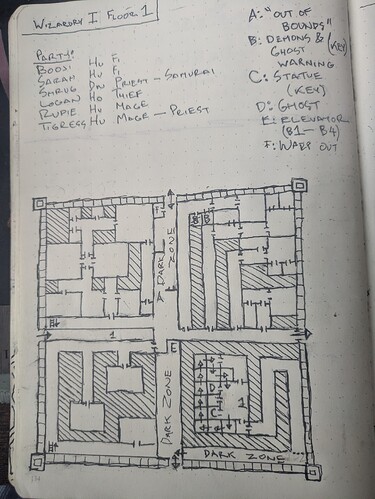 WIZARDRY I FLOOR 1
PARTY:
BOOSI HU FI
SARAH HU FI
SHRUG DW PRIEST — SAMURAI
LOGAN HO THIEF
RUPIE HU MAGE
TIGRESS HU MAGE — PRIEST
A: "OUT OF
BOUNDS"
B: DEMONS & (KEY)
GHOST
WARNING
C: STATUE
(KEY)
D: GHOST
E: ELEVATOR
(B1 — B4)
F: WARP OUT
F
B
DARK ZONE
A
1
E
DARK ZONE
D
C
1
DARK ZONE